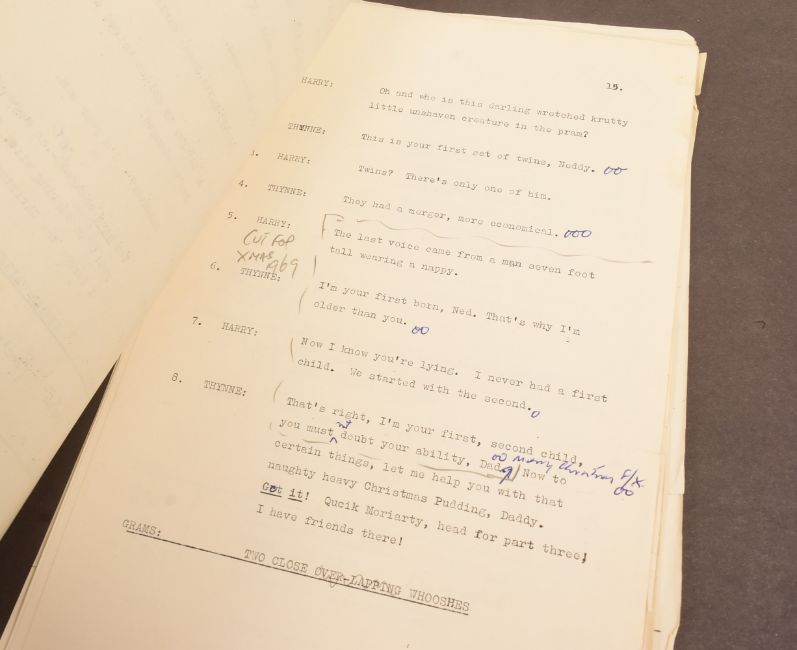 15.
HARRY: Oh and who is this darling wretched krutty
little unshaven creature in the pram?
THYNNE: This is your first set of twins, Neddy. oo
3. HARRY: Twins? There's only one of him.
4. THYNNE: They had a merger, more economical. ooo
5. HARRY: The last voice came from a man seven foot
tall wearing a nappy.
CUT FOR
XMAS 1969
6. THYNNE: I'm your first born, Ned. That's why I'm
older than you. oo
7. HARRY: Now I know you're lying. I never had a first
child. We started with the second. o
8. THYNNE: That's right, I'm your first, second child,
you must nt doubt your ability, Dad Now to
oo Merry Christmas F/X
oo
certain things, let me help you with that
naughty heavy Christmas Pudding, Daddy.
Got it! Qucik Moriarty, head for part three!
I have friends there!
GRAMS: TWO CLOSE OVER-LAPPING WHOOSHES